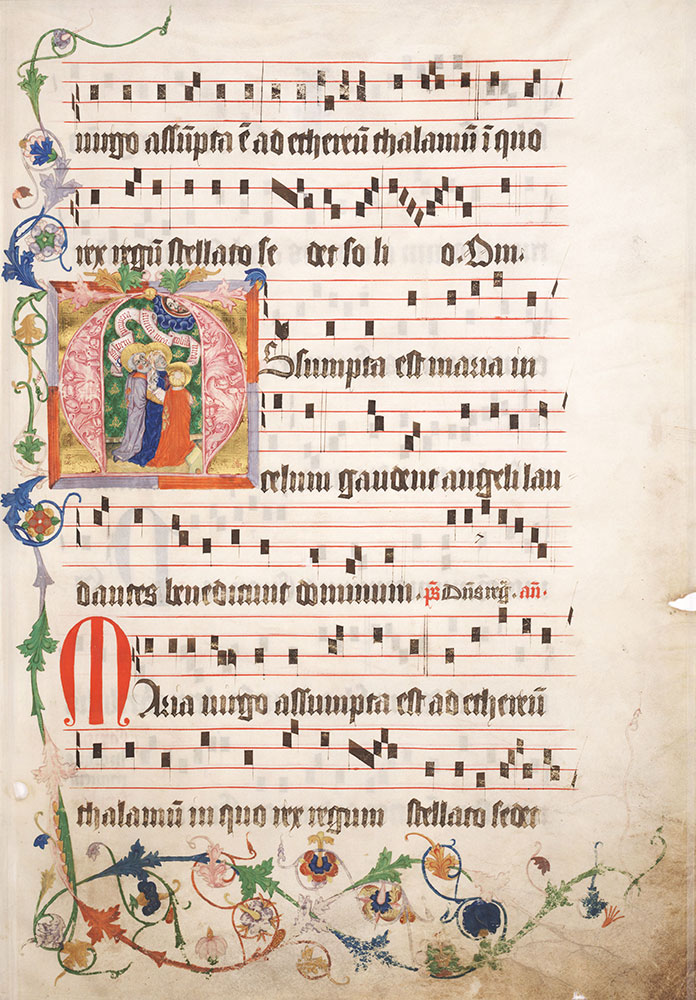 uirgo assūpta ē ad ethereū thalamū ī quo
rex regū stellato se det so li o. Dm̄.
Assumpta est maria in
celum gaudent angeli lau
dantes benedicunt dominum. p̄s Dn̄s reḡ. an̄.
Maria uirgo assumpta est ad ethereū
thalamū in quo rex regum stellato sedet